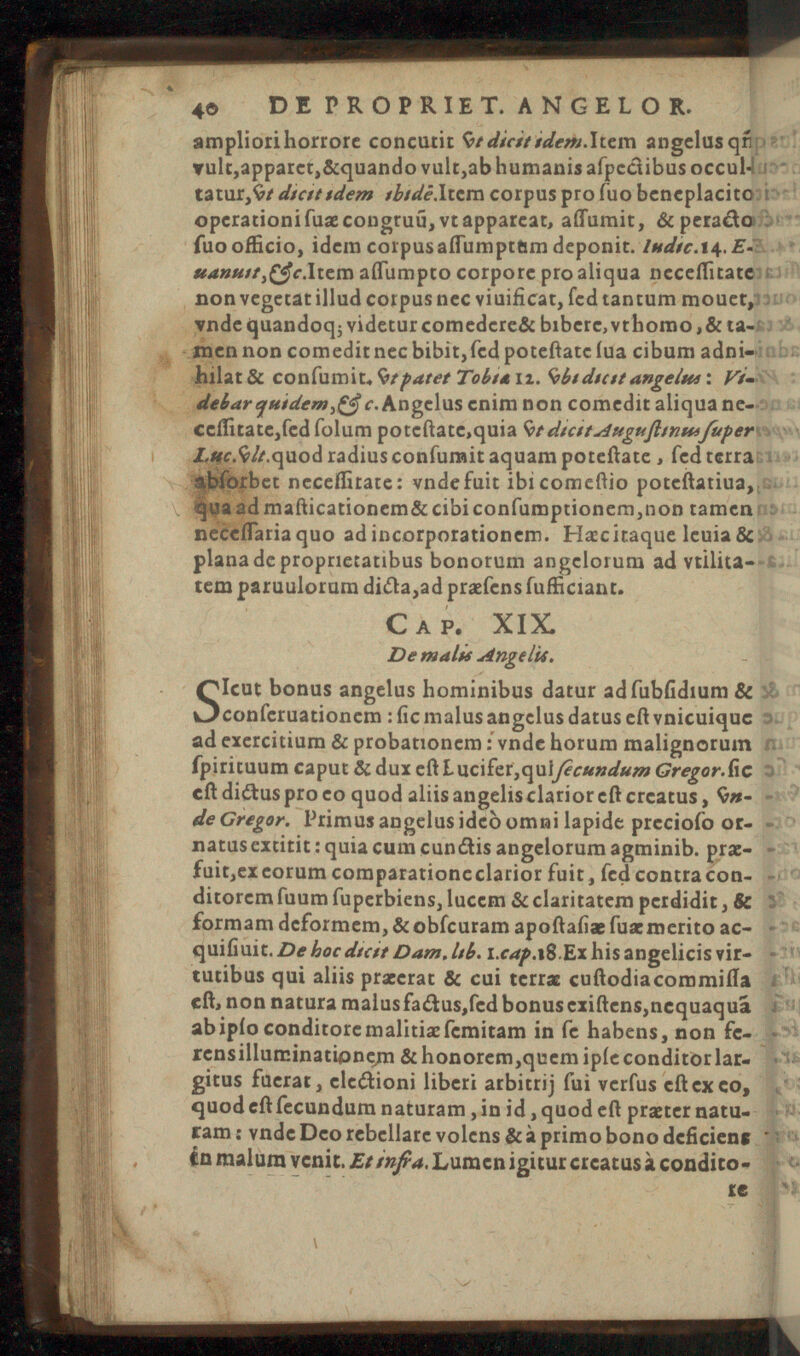 40 DE PROPRIET. ANGELOR.
ampliori horrore concutit vt dicit idem. Item angelus qñ
vult, apparet, & quando vult, ab humanis aſpectibus occul-
tatur, vt dicit idem ibidē. Item corpus pro ſuo beneplacito
operationi ſuæ congruū, vt appareat, aſſumit, & peracto
ſuo officio, idem corpus aſſumptum deponit. Iudic. 14. E-
uanuit, &c. Item aſſumpto corpore pro aliqua neceſſitate
non vegetat illud corpus nec viuificat, ſed tantum mouet,
vnde quandoq; videtur comedere & bibere, vt homo, & ta-
men non comedit nec bibit, ſed poteſtate ſua cibum adni-
hilat & conſumit. vt patet Tobiæ 12. vbi dicit angelus: Vi-
debar quidem, & c. Angelus enim non comedit aliqua ne-
ceſſitate, ſed ſolum poteſtate, quia vt dicit Auguſtinus ſuper
Luc. vlt. quod radius conſumit aquam poteſtate, ſed terra
abſorbet neceſſitate: vnde fuit ibi comeſtio poteſtatiua,
qua ad maſticationem & cibi conſumptionem, non tamen
neceſſaria quo ad incorporationem. Hæc itaque leuia &
plana de proprietatibus bonorum angelorum ad vtilita-
tem paruulorum dicta, ad præſens ſufficiant.
CAP. XIX.
De malis Angelis.
SIcut bonus angelus hominibus datur ad ſubſidium &
conſeruationem: ſic malus angelus datus eſt vnicuique
ad exercitium & probationem: vnde horum malignorum
ſpirituum caput & dux eſt Lucifer, qui ſecundum Gregor. ſic
eſt dictus pro eo quod aliis angelis clarior eſt creatus, vn-
de Gregor. Primus angelus ideò omni lapide precioſo or-
natus extitit: quia cum cunctis angelorum agminib. præ-
fuit, ex eorum comparatione clarior fuit, ſed contra con-
ditorem ſuum ſuperbiens, lucem & claritatem perdidit, &
formam deformem, & obſcuram apoſtaſiæ ſuæ merito ac-
quiſiuit. De hoc dicit Dam. lib. 1. cap. 18. Ex his angelicis vir-
tutibus qui aliis præerat & cui terræ cuſtodia commiſſa
eſt, non natura malus factus, ſed bonus exiſtens, nequaquā
ab ipſo conditore malitiæ ſemitam in ſe habens, non fe-
rens illuminationem & honorem, quem ipſe conditor lar-
gitus fuerat, electioni liberi arbitrij ſui verſus eſt ex eo,
quod eſt ſecundum naturam, in id, quod eſt præter natu-
ram: vnde Deo rebellare volens & à primo bono deficiens
in malum venit. Et infra. Lumen igitur creatus à condito-
re